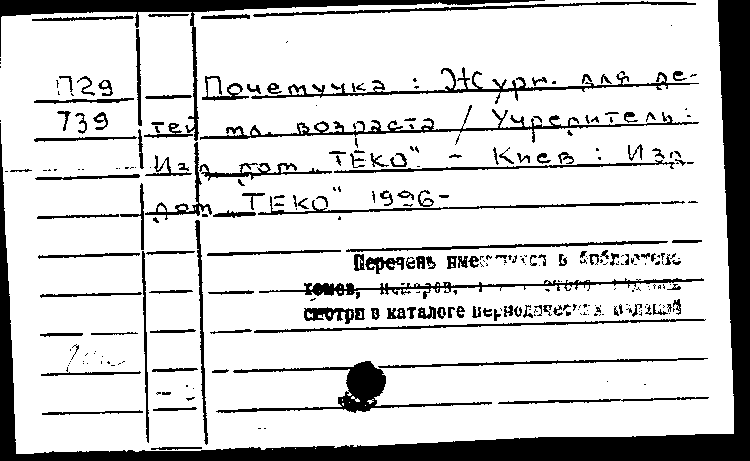 П29 Почемучка : Журн. для де-
739 тей мл. возраста / Учредитель:
Изд. дом „ТЕКО" - Киев : Изд.
дом „ТЕКО", 1996-
Перечень имеющихся в библиотеке
томов, номеров, этого издания
смотри в каталоге периодических изданий